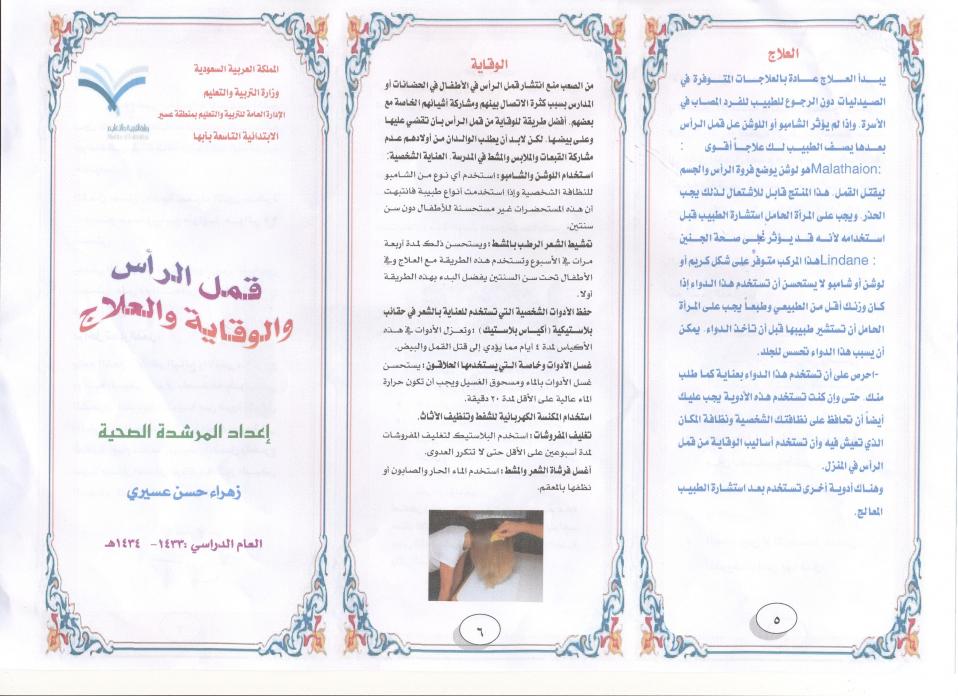 العلاج
يبدأ العلاج عادة بالعلاجات المتوفرة في
الصيدليات دون الرجوع للطبيب للفرد المصاب في
الأسرة. وإذا لم يؤثر الشامبو أو اللوشن عل قمل الرأس
بعدها يصف الطبيب لك علاجاً أقوى :
Malathaion: هو لوشن يوضع فروة الرأس والجسم
ليقتل القمل. هذا المنتج قابل للاشتعال لذلك يجب
الحذر. ويجب على المرأة الحامل استشارة الطبيب قبل
استخدامه لأنه قد يؤثر على صحة الجنين
Lindane : هذا المركب متوفر على شكل كريم أو
لوشن أو شامبو لا يستحسن أن تستخدم هذا الدواء إذا
كان وزنك أقل من الطبيعي وطبعاً يجب على المرأة
الحامل أن تستشير طبيبها قبل أن تأخذ الدواء. يمكن
أن يسبب هذا الدواء تحسس للجلد.
-احرص على أن تستخدم هذا الدواء بعناية كما طلب
منك. حتى وإن كنت تستخدم هذه الأدوية يجب عليك
أيضاً أن تحافظ على نظافتك الشخصية ونظافة المكان
الذي تعيش فيه وأن تستخدم أساليب الوقاية من قمل
الرأس في المنزل.
وهناك أدوية أخرى تستخدم بعد استشارة الطبيب
المعالج.
٥
الوقاية
من الصعب منع انتشار قمل الرأس في الأطفال في الحضانات أو
المدارس بسبب كثرة الاتصال بينهم ومشاركة أشيائهم الخاصة مع
بعضهم. أفضل طريقة للوقاية من قمل الرأس بأن تقضي عليها
وعلى بيضها. لكن لابد أن يطلب الوالدان من أولادهم عدم
مشاركة القبعات والملابس والمشط في المدرسة. العناية الشخصية:
استخدام اللوشن والشامبو: استخدم أي نوع من الشامبو
للنظافة الشخصية وإذا استخدمت أنواع طبية فانتبهت
أن هذه المستحضرات غير مستحسنة للأطفال دون سن
سنتين.
تمشيط الشعر الرطب بالمشط: ويستحسن ذلك لمدة أربعة
مرات في الأسبوع وتستخدم هذه الطريقة مع العلاج وفي
الأطفال تحت سن السنتين يفضل البدء بهذه الطريقة
أولا.
حفظ الأدوات الشخصية التي تستخدم للعناية بالشعر في حقائب
بلاستيكية (أكياس بلاستيك): وتعزل الأدوات في هذه
الأكياس لمدة ٤ أيام مما يؤدي إلى قتل القمل والبيض.
غسل الأدوات وخاصة التي يستخدمها الحلاقون: يستحسن
غسل الأدوات بالماء ومسحوق الغسيل ويجب أن تكون حرارة
الماء عالية على الأقل لمدة ٢٠ دقيقة.
استخدام المكنسة الكهربائية للشفط وتنظيف الأثاث.
تغليف المفروشات: استخدم البلاستيك لتغليف المفروشات
لمدة أسبوعين على الأقل حتى لا تتكرر العدوى.
أغسل فرشاة الشعر والمشط: استخدم الماء الحار والصابون أو
نظفها بالمعقم.
٦
المملكة العربية السعودية
وزارة التربية والتعليم
الإدارة العامة للتربية والتعليم بمنطقة عسير
الابتدائية التاسعة بأبها
وزارة التربية والتعليم
قمل الرأس
والوقاية والعلاج
إعداد المرشدة الصحية
زهراء حسن عسيري
العام الدراسي :١٤٣٣- ١٤٣٤هـ